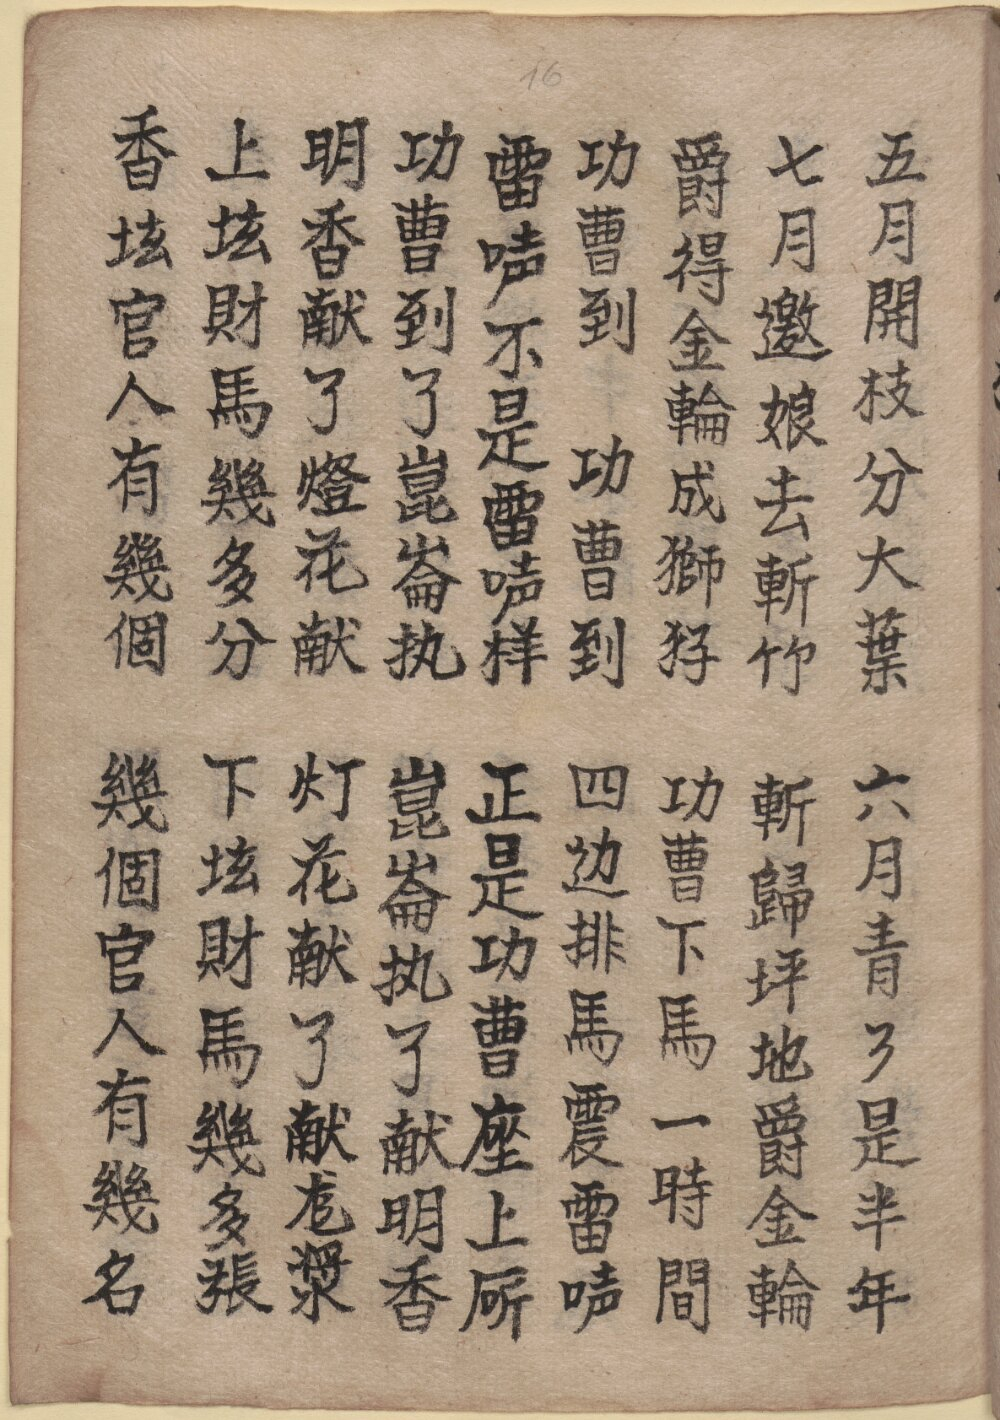 16
五月開枝分大葉 六月青了是半年
七月邀娘去斬竹 斬歸坪地爵金輪
爵得金輪成獅㺭 功曹下馬一時間
功曹到 功曹到 四边排馬震雷唠
雷唠不是雷唠样 正是功曹座上𠩄
功曹到了崑崙执 崑崙执了献明香
明香献了燈花献 灯花献了献漿
上坛財馬幾多分 下坛財馬幾多張
香坛官人有幾個 幾個官人有幾名